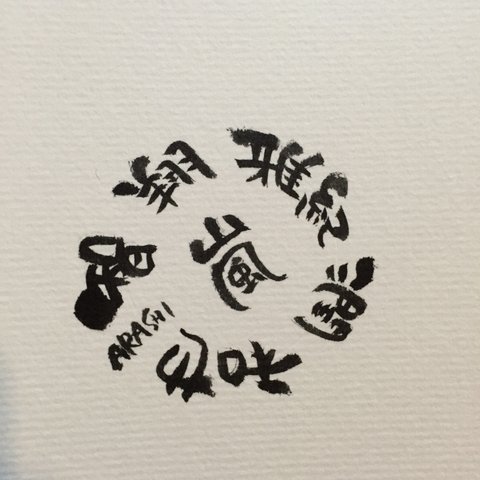 翔
雅紀
潤
和也
智
ARASHI
嵐